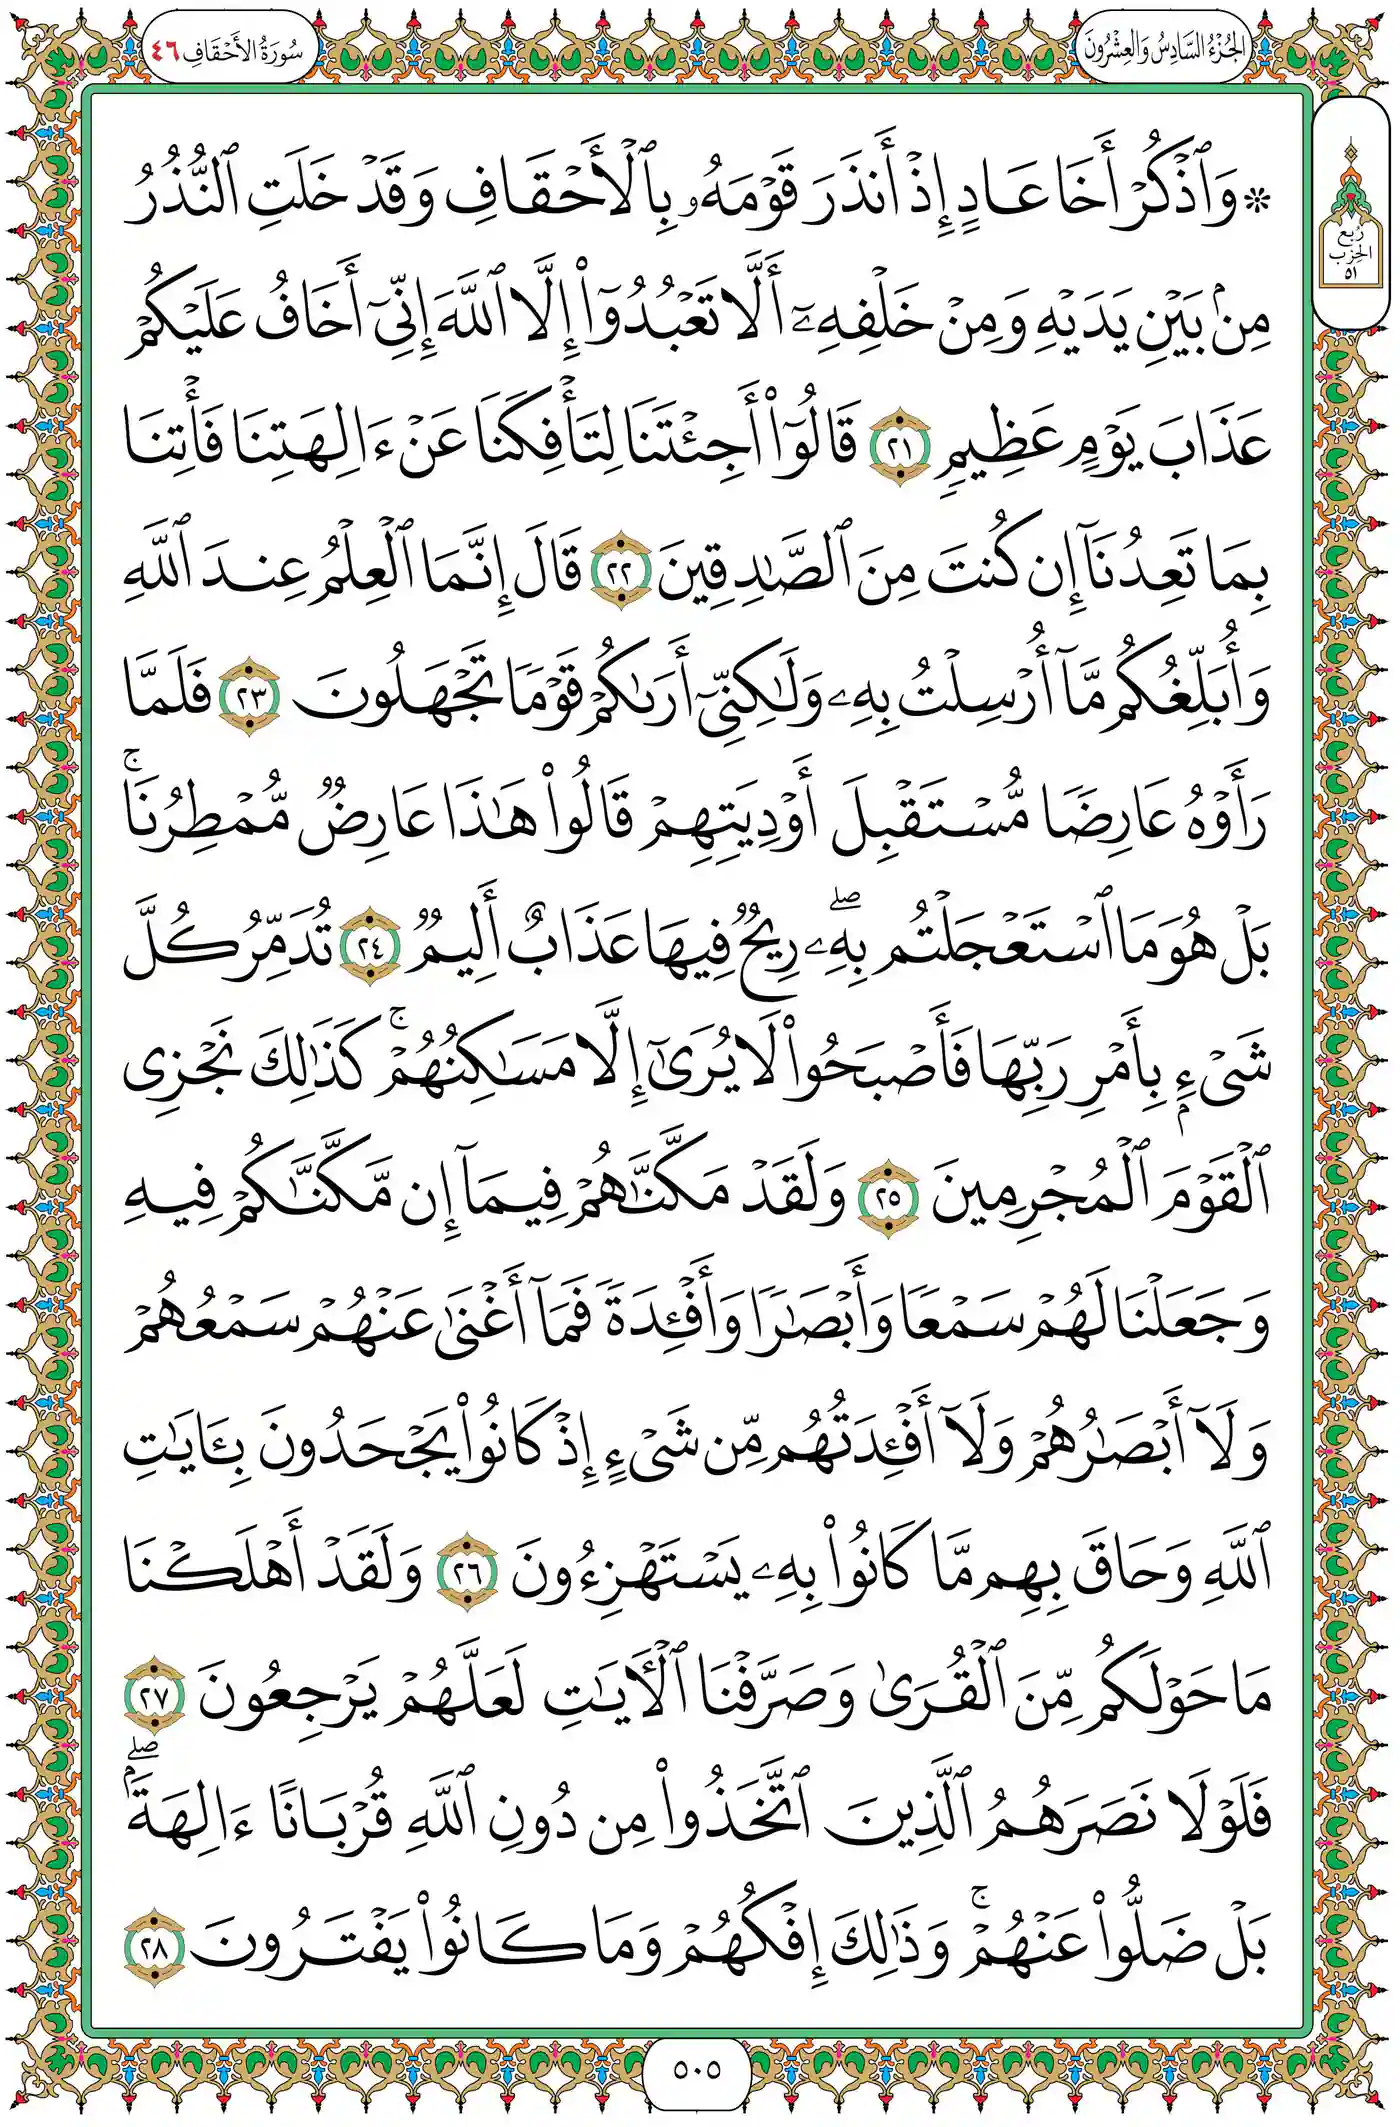 الجُزْءُ السَّادِسُ وَالعِشْرُونَ
سُورَةُ الأَحْقَافِ ٤٦
رُبع
الحِزب
٥١
۞ وَٱذۡكُرۡ أَخَا عَادٍ إِذۡ أَنذَرَ قَوۡمَهُۥ بِٱلۡأَحۡقَافِ وَقَدۡ خَلَتِ ٱلنُّذُرُ
مِنۢ بَيۡنِ يَدَيۡهِ وَمِنۡ خَلۡفِهِۦٓ أَلَّا تَعۡبُدُوٓاْ إِلَّا ٱللَّهَ إِنِّيٓ أَخَافُ عَلَيۡكُمۡ
عَذَابَ يَوۡمٍ عَظِيمٖ ٢١ قَالُوٓاْ أَجِئۡتَنَا لِتَأۡفِكَنَا عَنۡ ءَالِهَتِنَا فَأۡتِنَا
بِمَا تَعِدُنَآ إِن كُنتَ مِنَ ٱلصَّٰدِقِينَ ٢٢ قَالَ إِنَّمَا ٱلۡعِلۡمُ عِندَ ٱللَّهِ
وَأُبَلِّغُكُم مَّآ أُرۡسِلۡتُ بِهِۦ وَلَٰكِنِّيٓ أَرَىٰكُمۡ قَوۡمٗا تَجۡهَلُونَ ٢٣ فَلَمَّا
رَأَوۡهُ عَارِضٗا مُّسۡتَقۡبِلَ أَوۡدِيَتِهِمۡ قَالُواْ هَٰذَا عَارِضٞ مُّمۡطِرُنَاۚ
بَلۡ هُوَ مَا ٱسۡتَعۡجَلۡتُم بِهِۦۖ رِيحٞ فِيهَا عَذَابٌ أَلِيمٞ ٢٤ تُدَمِّرُ كُلَّ
شَيۡءِۭ بِأَمۡرِ رَبِّهَا فَأَصۡبَحُواْ لَا يُرَىٰٓ إِلَّا مَسَٰكِنُهُمۡۚ كَذَٰلِكَ نَجۡزِي
ٱلۡقَوۡمَ ٱلۡمُجۡرِمِينَ ٢٥ وَلَقَدۡ مَكَّنَّٰهُمۡ فِيمَآ إِن مَّكَّنَّٰكُمۡ فِيهِ
وَجَعَلۡنَا لَهُمۡ سَمۡعٗا وَأَبۡصَٰرٗا وَأَفۡـِٔدَةٗ فَمَآ أَغۡنَىٰ عَنۡهُمۡ سَمۡعُهُمۡ
وَلَآ أَبۡصَٰرُهُمۡ وَلَآ أَفۡـِٔدَتُهُم مِّن شَيۡءٍ إِذۡ كَانُواْ يَجۡحَدُونَ بِـَٔايَٰتِ
ٱللَّهِ وَحَاقَ بِهِم مَّا كَانُواْ بِهِۦ يَسۡتَهۡزِءُونَ ٢٦ وَلَقَدۡ أَهۡلَكۡنَا
مَا حَوۡلَكُم مِّنَ ٱلۡقُرَىٰ وَصَرَّفۡنَا ٱلۡأٓيَٰتِ لَعَلَّهُمۡ يَرۡجِعُونَ ٢٧
فَلَوۡلَا نَصَرَهُمُ ٱلَّذِينَ ٱتَّخَذُواْ مِن دُونِ ٱللَّهِ قُرۡبَانًا ءَالِهَةَۢۖ
بَلۡ ضَلُّواْ عَنۡهُمۡۚ وَذَٰلِكَ إِفۡكُهُمۡ وَمَا كَانُواْ يَفۡتَرُونَ ٢٨
٥٠٥